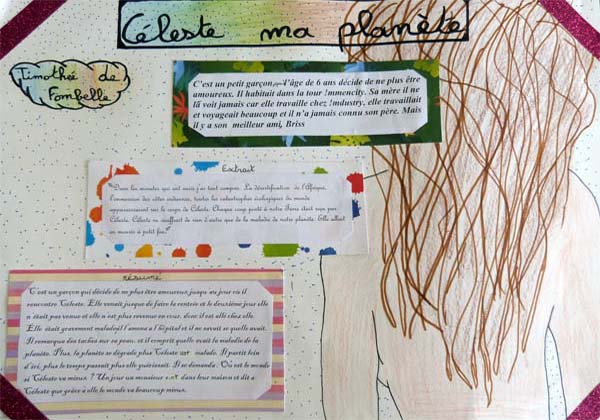 Céleste ma planète
Timothée de
Fombelle
C'est un petit garçon, à l'âge de 6 ans décide de ne plus être
amoureux. Il habitait dans la tour !mmencity. Sa mère il ne
la voit jamais car elle travaille chez !ndustry, elle travaillait
et voyageait beaucoup et il n'a jamais connu son père. Mais
il y a son meilleur ami, Briss
Extrait
"Dans les minutes qui ont suivi j'ai tout compris. La désertification de l'Afrique,
l'immersion des cités indiennes, toutes les catastrophes écologiques du monde
apparaissaient sur le corps de Céleste. Chaque coup porté à notre Terre était reçu par
Céleste. Céleste ne souffrait de rien d'autre que de la maladie de notre planète. Elle allait
en mourir à petit feu."
résumé
C'est un garçon qui décide de ne plus être amoureux jusqu'au jour où il
rencontre Céleste. Elle venait jusque de faire la rentrée et le deuxième jour elle
n'était pas venue et elle n'est plus revenue en cour, donc il est allé chez elle.
Elle était gravement malade il l'amena a l'hôpital et il ne savait se quelle avait.
Il remarque des taches sur sa peau, et il comprit quelle avait la maladie de la
planète. Plus, la planète se dégrade plus Céleste est malade. Il partit loin
d'ici, plus le temps passait plus elle guérissait. Il se demanda : Où est le monde
si Céleste va mieux ? Un jour un monsieur est dans leur maison et dit a
Céleste que grâce à elle le monde va beaucoup mieux.